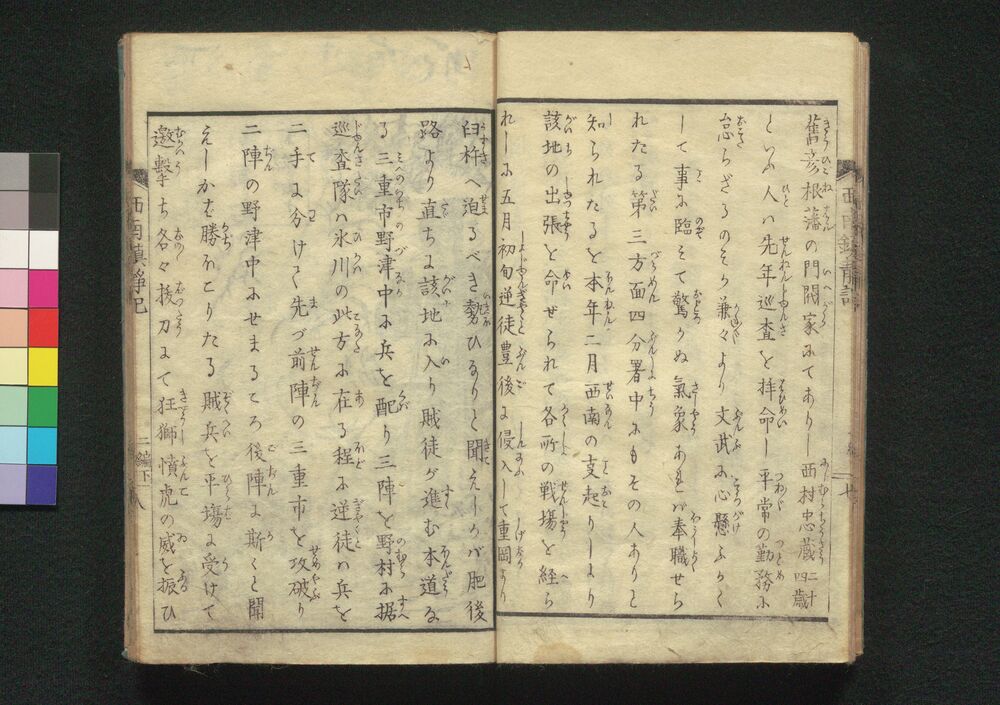 舊彦根藩の門閥家にてありし西村忠蔵二十四歳
といふ人ハ先年巡査を拝命し平常の勤務に
怠らざるのミか兼々より文武に心懸ふかく
して事に臨ミて驚かぬ氣象あれバ奉職せら
れたる第三方面四分署中にもその人ありと
知られたるを本年二月西南の変起りしより
該地の出張を命せられて各所の戦場を経ら
れしに五月初旬逆徒豊後に侵入して重岡より
臼杵へ迫るべき勢ひなりと聞えしかバ肥後
路より直ちに該地に入り賊徒が進む本道な
る三重市野津中に兵を配り三陣を野村に据
巡査隊ハ氷川の此方に在る程に逆徒ハ兵を
二手に分けて先づ前陣の三重市を攻破り
二陣の野津中にせまるころ後陣に斯くと聞
えしかば勝ほこりたる賊兵を平塲に受けて
邀撃ち各々抜刀にて狂獅憤虎の威を振ひ
西南鎮静記
二編下
八